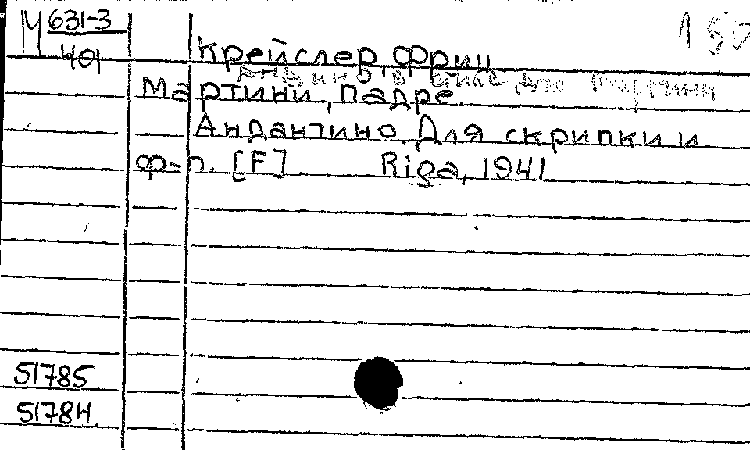 М 631-3
401
150
Крейслер, Фриц
Андантино в стиле для Мартини
Мартини, падре.
Андантино. Для скрипки и
ф-п. [F] Riga, 1941
51785
51784